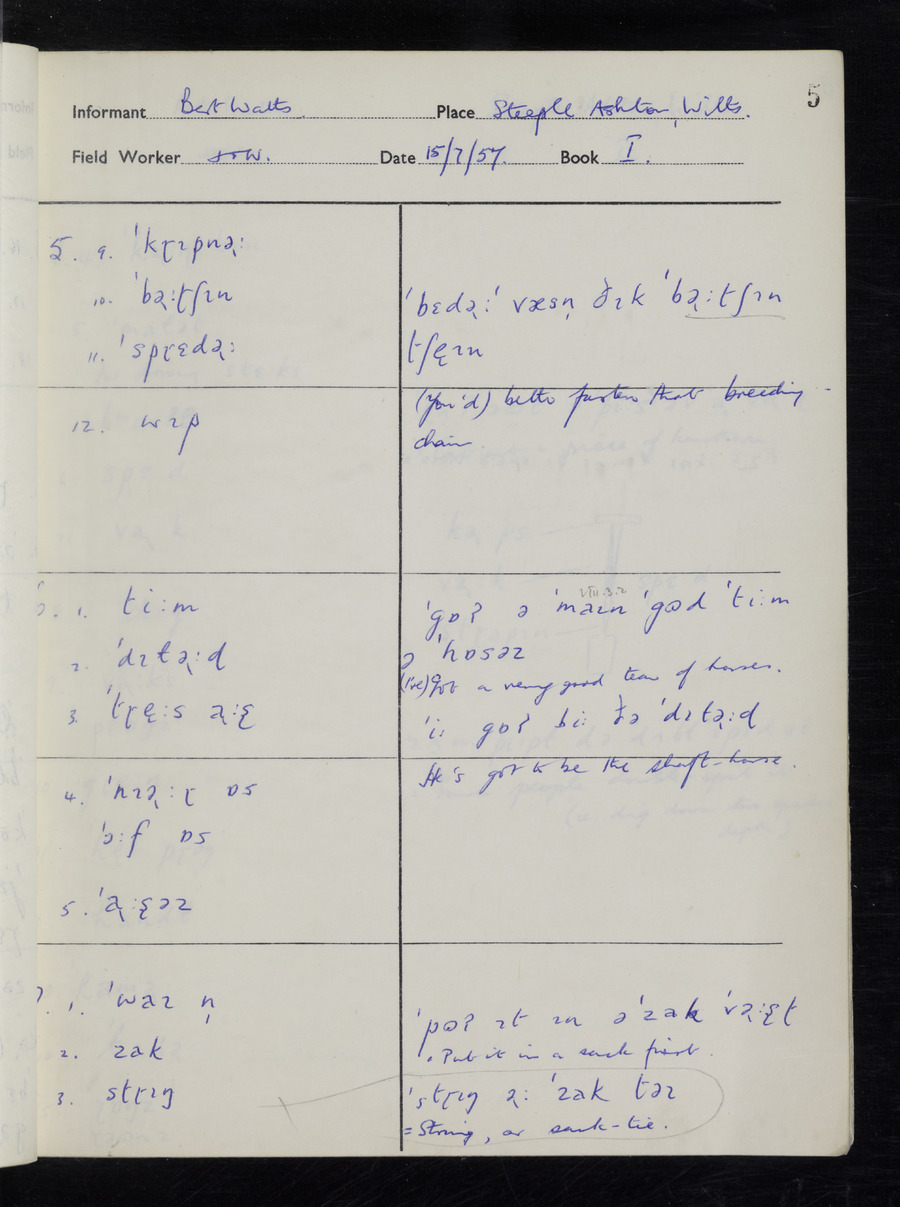 5
Informant Bert Watts. Place Steeple Ashton, Wilts.
Field Worker Date 15/7/57. Book I.
5. 9. ˈkɽɪpnəɭ:
10. ˈbəɭ:ʈʃɪn
11. ˈspɽɛdəɭ:
12. wɪp
ˈbɛdəɭ:ˈ væsn̩ ðɪk ˈbəɭ:ʈʃɪn
(You'd) better fasten that breeding-
chain.
1. ti:m
2. ˈdɪtəɭ:d
3.
4.
ˈɔ:f ɒs
5.
ˈgɒʔ ə ˈmaɪn ˈgɒd ˈti:m
VIII.3.2
ə ˈhɒsəz
(I've) Got a very good team of horses.
ˈi: gɒʔ bi: ðə ˈdɪtəɭ:d
He's got to be the shaft-horse.
1. ˈwaɪ n̩
2. zak
3. stɽɪŋ
ˈpɒʔ ɪt ɪn əˈzak
Put it in a sack first.
ˈstɽɪŋ əɭ: ˈzak təɪ
= String, or sack-tie.